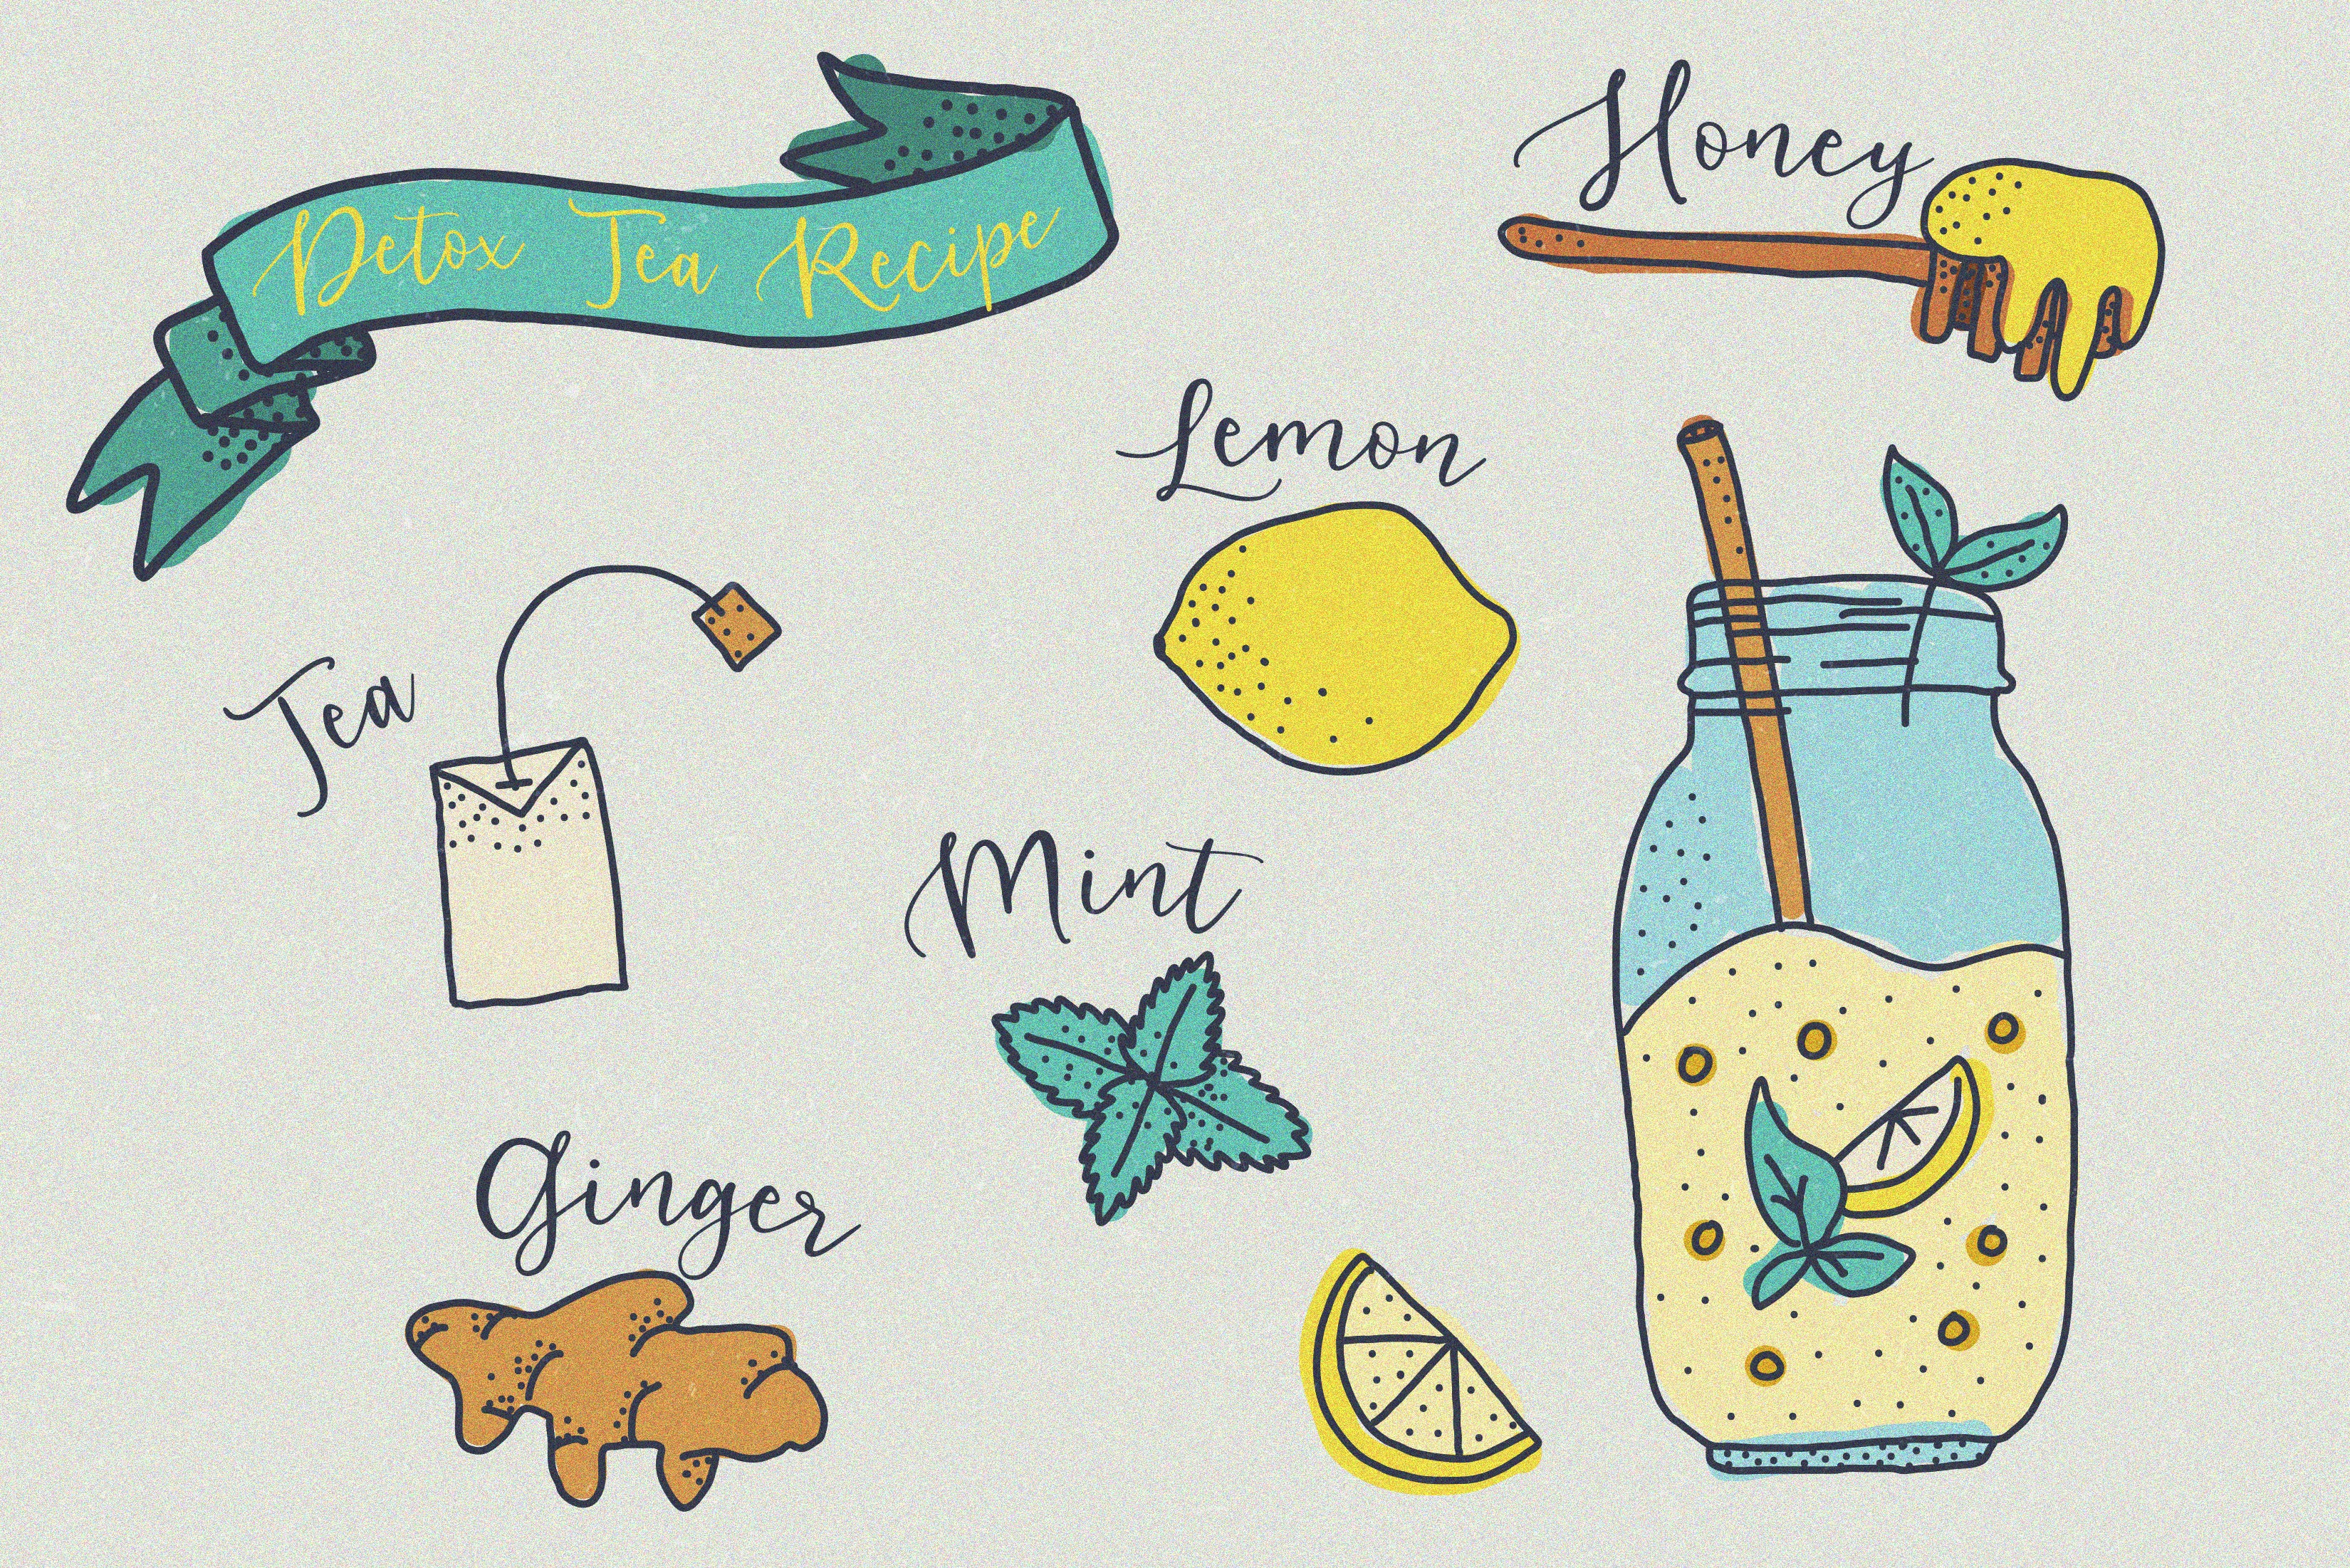 Detox Tea Recipe
Honey
Lemon
Tea
Mint
Ginger